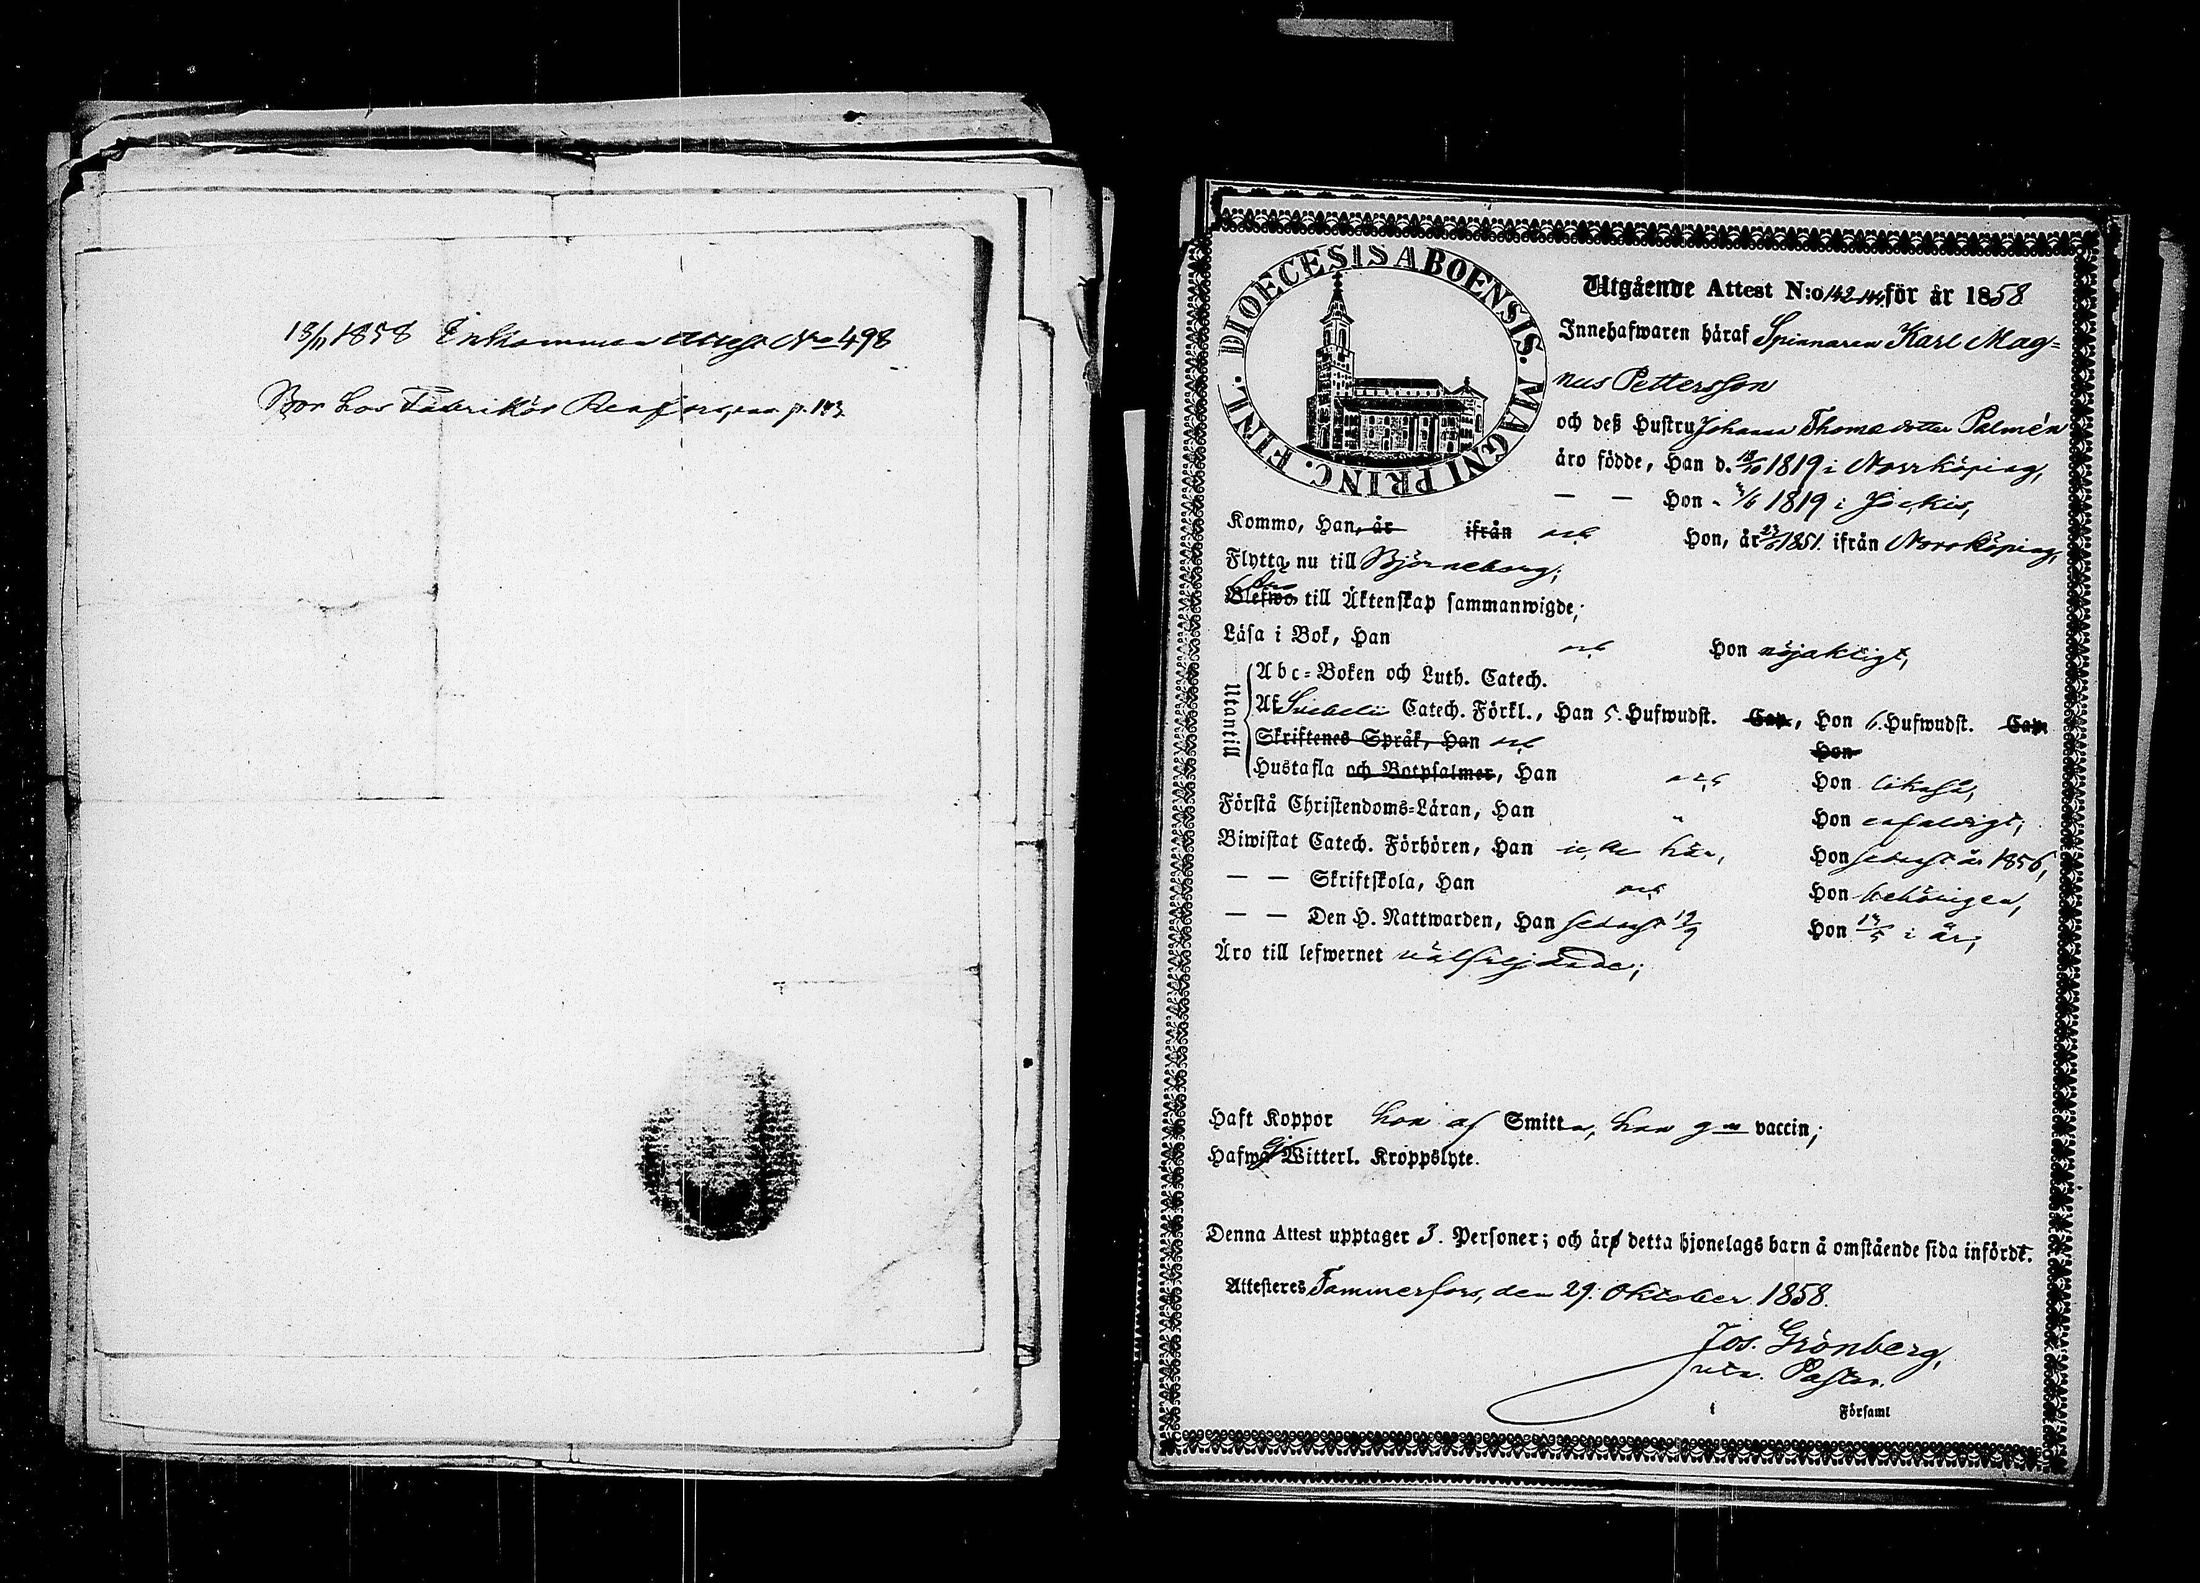 13/11 1858 Inkommen attest No 498
Bor hos Fabrikör
DIOECESIS ABOENSIS. MAGNI PRINC. FINL.
Utgående Attest N:o 142-144 för år 1858
Innehafwaren häraf Spinnaren Karl Mag-
nus Pettersson
och deß Hustru Johanna Thomasdotter Palmén
äro födde, Han d. 1819 i Norrköping,
— — Hon 1819 i Jockis,
Kommo, Han, år ifrån och Hon, år 1851 ifrån Norrköping,
Flytta nu till Björneborg;
Blefwo till Äktenskap sammanwigde;
Läsa i Bok, Han och Hon nöjaktigt,
Utantill
Abc-Boken och Luth. Catech.
Af Svebelii Catech. Förkl., Han 5. Hufwudst. Cap., Hon 6. Hufwudst. Cap.
Skriftenes Språk, Han och Hon
Hustafla och Botpsalmer, Han och Hon likaså,
Förstå Christendoms-Läran, Han " Hon enfaldigt;
Biwistat Catech. Förhören, Han icke här, Hon sednast år 1856,
— — Skriftskola, Han och Hon behörigen,
— — Den H. Nattwarden, Han sednast 19/9 Hon i år;
Äro till lefwernet välfrejdade;
Haft Koppor hon af Smitta, han gm vaccin;
Hafwa Ej Witterl. Kroppslyte.
Denna Attest upptager 3. Personer; och äro detta hjonelags barn å omstående sida infördt.
Attesteres Tammerfors, den 29. Oktober 1858.
Jos. Grönberg,
Pastor.
i Församl